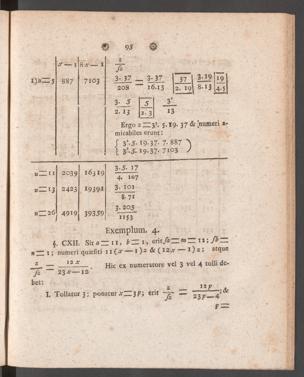 95
x — 1 | 8x — 1 | z/∫z
1) n=5 | 887 | 7103 | 3. 37/208 = 3. 37/16.13 | 37/2. 19 | 3.19/8.13 | 19/4.5
3. 5/2. 13 | 5/2. 3 | 3²/13
Ergo z = 3². 5. 19. 37 & numeri a-
micabiles erunt:
{ 3². 5. 19. 37. 7. 887
{ 3². 5. 19. 37. 7103
n=11 | 2039 | 16319 | 3. 5. 17/4. 107
n=13 | 2423 | 19391 | 3. 101/8. 71
n=26 | 4919 | 39359 | 3. 203/1153
Exemplum. 4.
§. CXII. Sit a = 11, b = 1, erit ∫a = m = 12; ∫b =
n = 1; numeri quæsiti 11 (x — 1) z & (12x — 1) z; atque
z/∫z = 12x/23x—12. Hic ex numeratore vel 3 vel 4 tolli de-
bet:
I. Tollatur 3; ponatur x = 3p; erit z/∫z = 12p/23p—4; &
p =